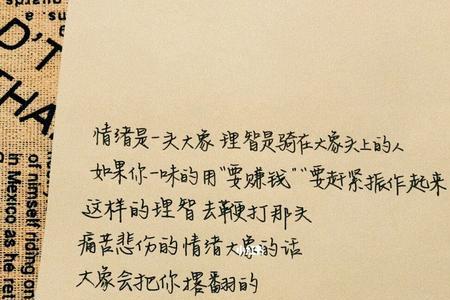 s. a
u su
D'T
THA
of himself riding on
in Mexico as he ret
情绪是一头大象 理智是骑在大象头上的人
如果你一味的用“要赚钱”“要赶紧振作起来
这样的理智去鞭打那头
痛苦悲伤的情绪大象的话
大象会把你撂翻的